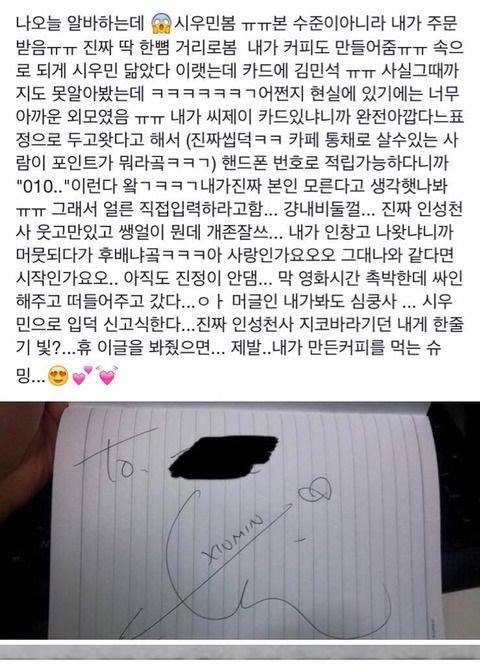 나오늘 알바하는데 😱시우민봄 ㅠㅠ본 수준이아니라 내가 주문
받음ㅠㅠ 진짜 딱 한뼘 거리로봄  내가 커피도 만들어줌ㅠㅠ 속으
로 되게 시우민 닮았다 이랬는데 카드에 김민석 ㅠㅠ 사실그때까
지도 못알아봤는데 ㅋㅋㅋㅋㅋㅋㄱ어쩐지 현실에 있기에는 너무
아까운 외모였음 ㅠㅠ 내가 씨제이 카드있냐니까 완전아깝다느표
정으로 두고왓다고 해서 (진짜씹덕ㅋㅋ 카페 통채로 살수있는 사
람이 포인트가 뭐라곸ㅋㅋㄱ) 핸드폰 번호로 적립가능하다니까
"010.."이런다 왘ㄱㅋㅋㄱ내가진짜 본인 모른다고 생각햇나봐
ㅠㅠ 그래서 얼른 직접입력하라고함... 걍내비둘껄... 진짜 인성천
사 웃고만있고 쌩얼이 뭔데 개존잘쓰... 내가 인창고 나왓냐니까
머뭇되다가 후배냐곸ㅋㅋ아 사랑인가요오오 그대나와 같다면
시작인가요오.. 아직도 진정이 안댐... 막 영화시간 촉박한데 싸인
해주고 떠들어주고 갔다...ㅇㅏ 머글인 내가봐도 심쿵사 ... 시우
민으로 입덕 신고식한다...진짜 인성천사 지코바라기던 내게 한줄
기 빛?...휴 이글을 봐줬으면... 제발..내가 만든커피를 먹는 슈
밍...😍💕💓
To.
XIUMIN